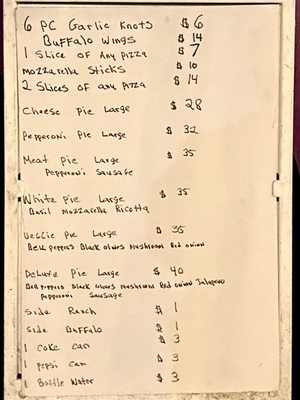 6 PC Garlic Knots $ 6
Buffalo Wings $ 14
1 Slice of Any Pizza $ 7
Mozzarella Sticks $ 10
2 Slices of any Pizza $ 14
Cheese Pie Large $ 28
Pepperoni Pie Large $ 32
Meat Pie Large $ 35
Pepperoni Sausage
White Pie Large $ 35
Basil Mozzarella Ricotta
Veggie Pie Large $ 35
Bell Peppers Black Olives Mushroom Red Onion
Deluxe Pie Large $ 40
Bell Peppers Black Olives Mushroom Red Onion Jalapeno
Pepperoni Sausage
Side Ranch $ 1
Side Buffalo $ 1
1 Coke Can $ 3
1 Pepsi Can $ 3
1 Bottle Water $ 3